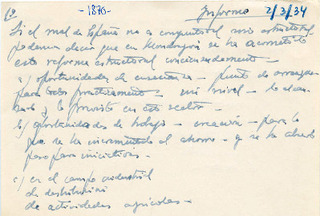 1º - 1870 - Informe 2/3/34
Si el mal de España no es coyuntural sino estructural
podemos decir que en Mondragon se ha acometido
esta reforma estructural concienzudamente -
a) oportunidades de enseñanza - punto de arranque
para todos practicamente - mi nivel - lo alcan-
zado y lo previsto en este sector -
b) oportunidades de trabajo - creación - para lo
que se ha incrementado el ahorro - y se ha abierto
paso para iniciativas -
c) en el campo industrial
de distribución
de actividades agricolas -